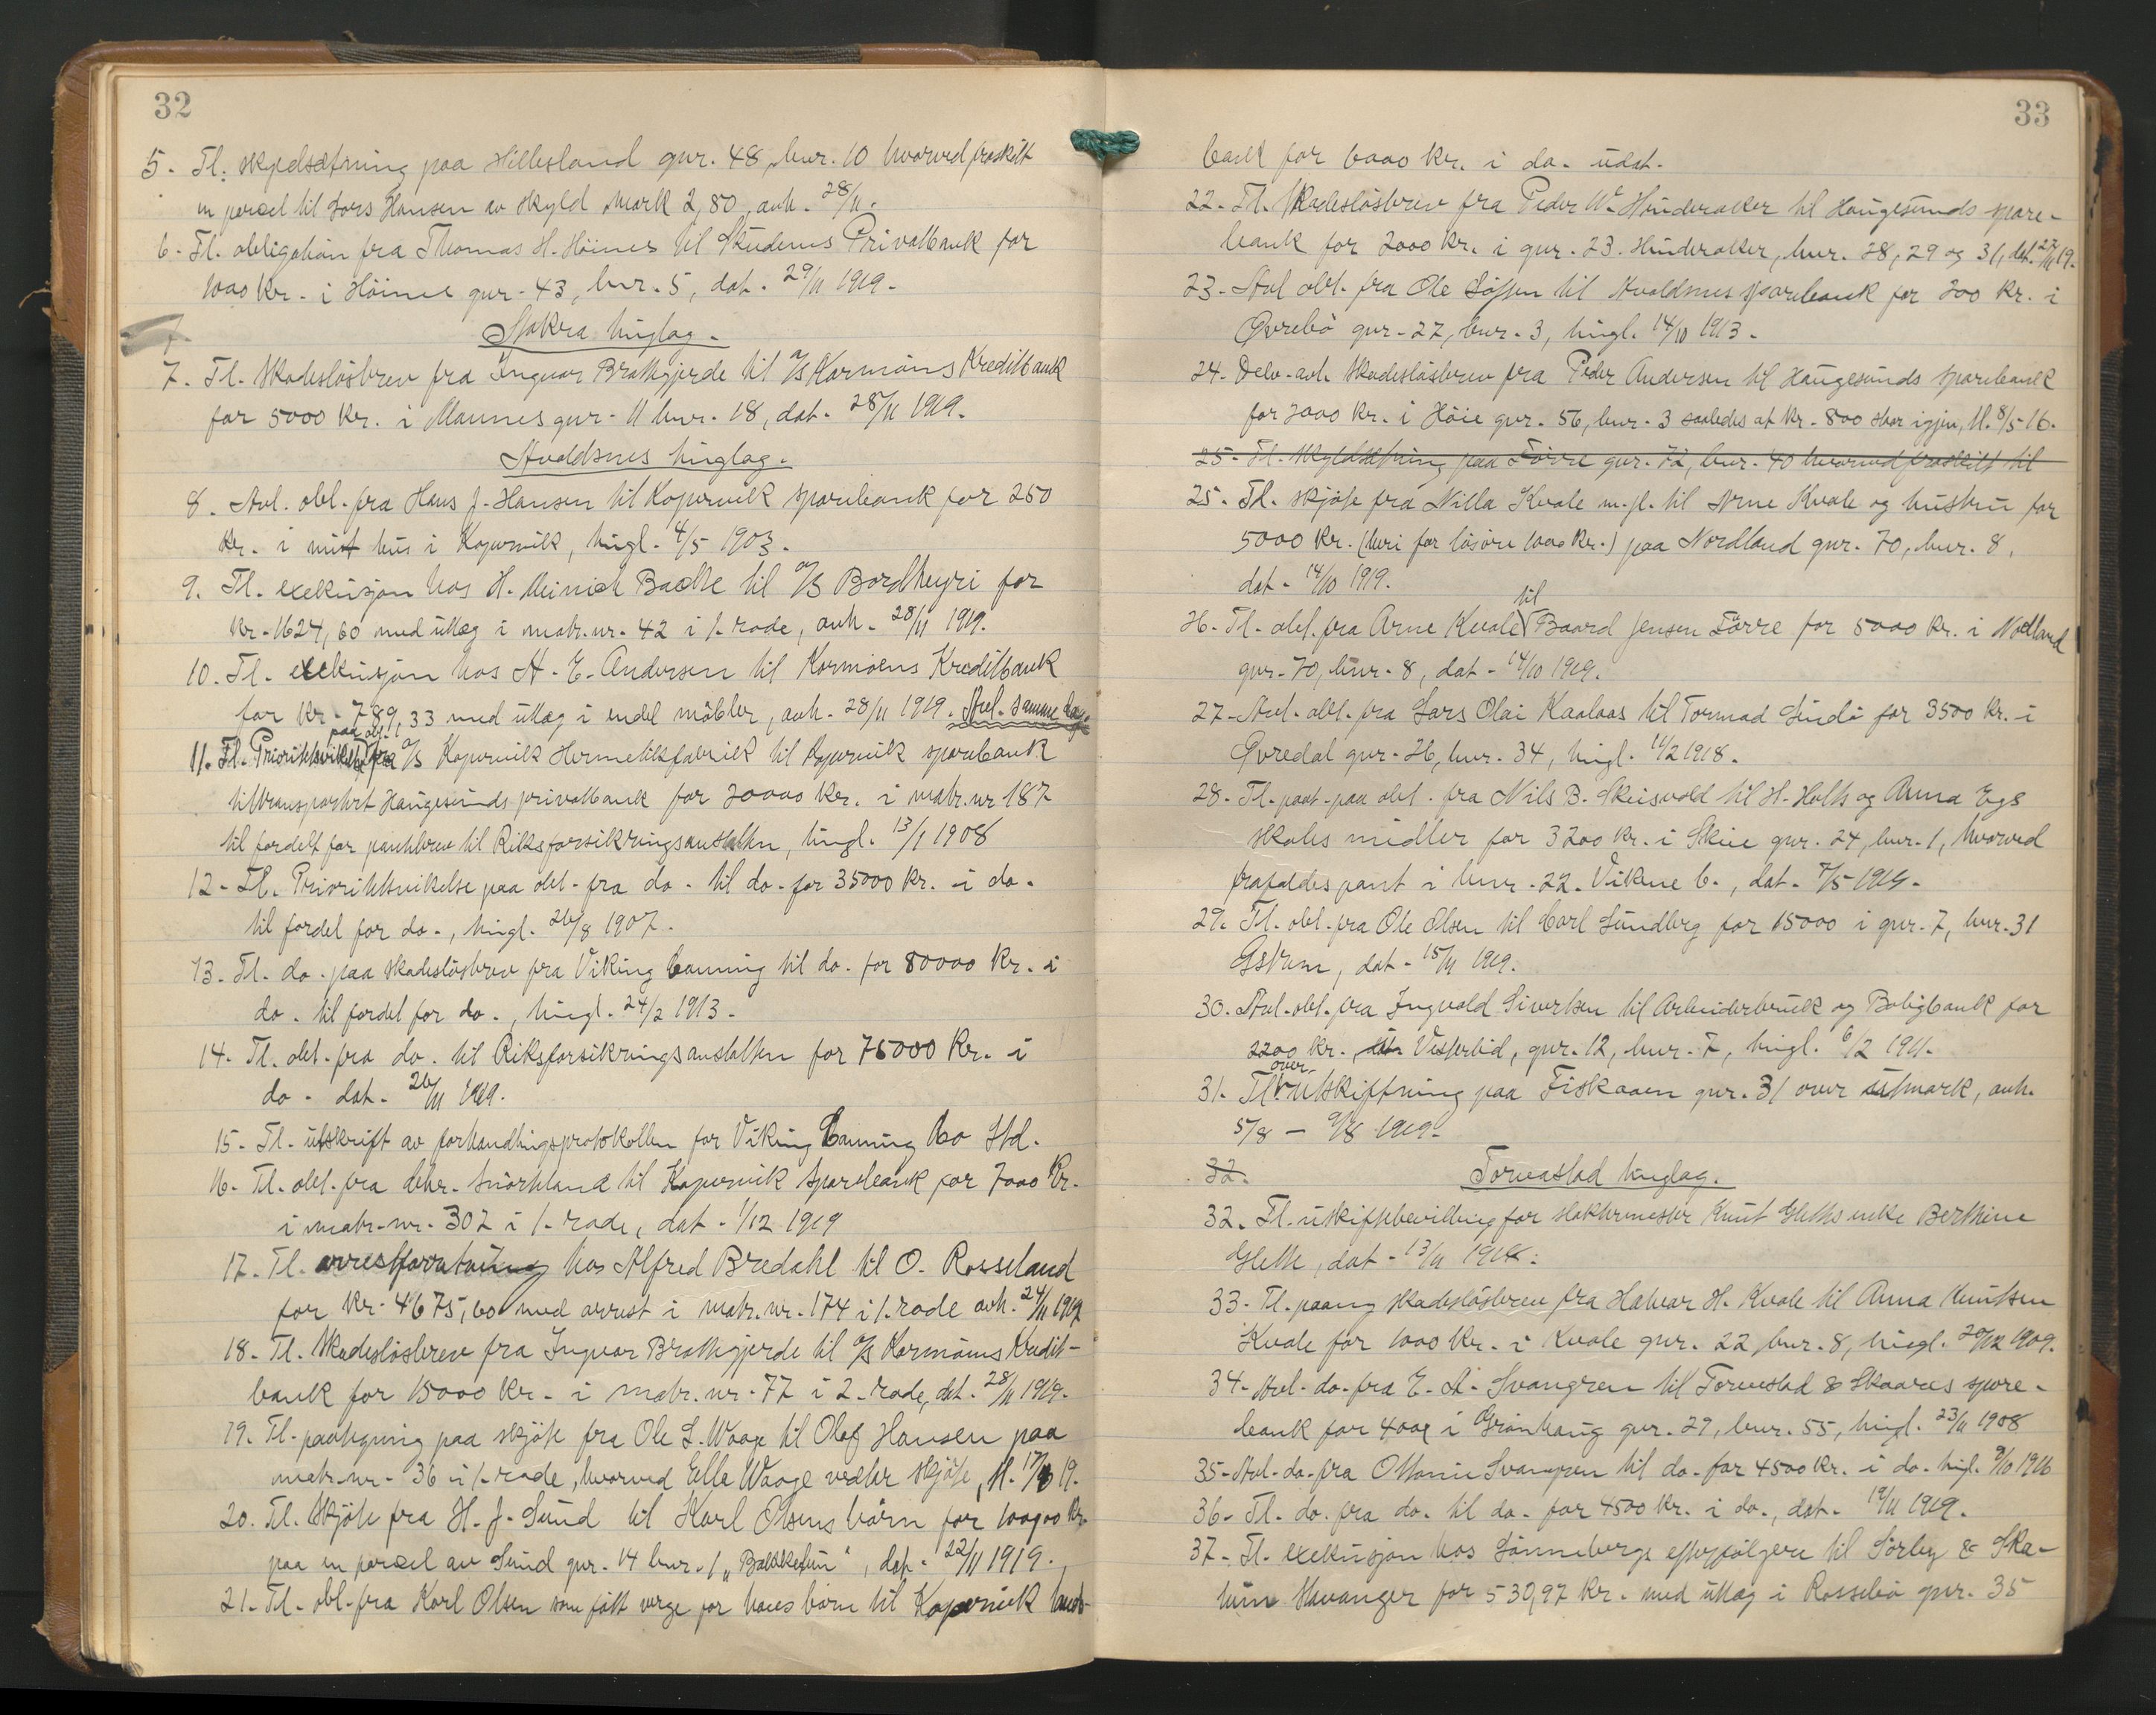 32
5. Tl. skyldsætning paa Hillesland gnr. 48, bnr. 10 hvorved fraskilt
en parcel til Lars Hansen av skyld mark 2,80, avh. 28/11.
6. Tl. obligation fra Thomas H. Höines til Skudenes Privatbank for
1000 kr. i Höines gnr. 43, bnr. 5, dat. 29/11 1919.
Aakra tinglag.
7. Tl. skadeslösbrev fra Ingvar Bratthgjerde til a/s Karmöens Kreditbank
for 5000 kr. i Mannes gnr. 11 bnr. 18, dat. 28/11 1919.
Avaldsnes tinglag.
8. Avl. obl. fra Hans J. Hansen til Kopervik sparebank for 250
kr. i mitt hus i Kopervik, tingl. 4/5 1903.
9. Tl. exekusjon hos H. Meinich Bache til a/s Bordheyri for
kr. 1624,60 med utlæg i matr.nr. 42 i 1. rode, avh. 28/11 1919.
10. Tl. exekusjon hos A. E. Andersen til Karmöens Kreditbank
for kr. 789,33 med utlæg i endel möbler, avh. 28/11 1919. Avl. samme dag.
paa obl.
11. Tl. Prioritetsvikelse fra a/s Kopervik Hermetikfabrik til Kopervik sparebank
tiltransportert Haugesunds privatbank for 20000 kr. i matr.nr 187
til fordel for pantebrev til Riksforsikringsanstalten, tingl. 13/1 1908
12. Tl. Prioritetsvikelse paa obl. fra do. til do. for 35000 kr. i do.
til fordel for do., tingl. 26/8 1907.
13. Tl. do. paa skadeslösbrev fra Viking Canning til do. for 80000 kr. i
do. til fordel for do., tingl. 24/2 1913.
14. Tl. obl. fra do. til Riksforsikringsanstalten for 75000 kr. i
do. dat. 26/11 1919.
15. Tl. utskrift av forhandlingsprotokollen for Viking Canning Co Ltd.
16. Tl. obl. fra Snörteland til Kopervik Sparebank for 7000 kr.
i matr.nr. 302 i 1. rode, dat. 1/12 1919
17. Tl. arrestforretning hos Alfred Bredahl til O. Rosseland
for kr. 4675,60 med arrest i matr.nr. 174 i 1. rode avh. 24/11 1919
18. Tl. skadeslösbrev fra Ingvar Bratthgjerde til a/s Karmöens Kredit-
bank for 15000 kr. i matr.nr. 77 i 2. rode, dat. 28/11 1919.
19. Tl. paategning paa skjöte fra Ole L. Waage til Olaf Hansen paa
matr.nr. 36 i 1. rode, hvorved Elle Waage vedtar skjöte, tl. 19.
20. Tl. skjöte fra H. J. Sund til Karl Olsens börn for kr.
paa en parcel av Sund gnr. 14 bnr. 1 „Bakketun", dat. 22/11 1919.
21. Tl. obl. fra Karl Olsen som født verge for hans börn til Kopervik
33
bank for 6000 kr. i do. udat.
22. Tl. skadeslösbrev fra Peder W. Hinderaker til Haugesunds spare-
bank for 2000 kr. i gnr. 23. Hinderaker, bnr. 28, 29 og 31, dat. 19.
23. Avl obl. fra Ole til Avaldsnes sparebank for 200 kr. i
Øvrebö gnr. 27, bnr. 3, tingl. 14/10 1913.
24. Delv. avl. skadeslösbrev fra Peder Andersen til Haugesunds sparebank
for 2000 kr. i Höie gnr. 56, bnr. 3 saaledes at kr. 800 staar igjen, tl. 8/5-16.
25. Tl. skyldsætning paa Förre gnr. 72, bnr. 40 hvorved fraskilt til
25. Tl. skjöte fra Nilla Kvale m.fl. til Arne Kvale og hustru for
5000 kr. (heri for lösöre 1000 kr.) paa Nordland gnr. 70, bnr. 8,
dat. 14/10 1919.
til
26. Tl. obl. fra Arne Kvale Baard Jensen Förre for 5000 kr. i Nordland
gnr. 70, bnr. 8, dat. 14/10 1919.
27. Avl. obl. fra Lars Olai Kaalaas til Tormod Lindö for 3500 kr. i
Øvredal gnr. 26, bnr. 34, tingl. 11/2 1918.
28. Tl. paat. paa obl. fra Nils B. Skeisvold til H. Holts og Anna Egs
skoles midler for 3200 kr. i Skeie gnr. 24, bnr. 1, hvorved
frafaldes pant i bnr. 22. Vikene 6., dat. 7/5 1919.
29. Tl. obl. fra Ole Olsen til Carl Sundberg for 15000 i gnr. 7, bnr. 31
Østrem, dat. 15/11 1919.
30. Avl. obl. fra Ingvald Sivertsen til Arbeiderbruk og Boligbank for
2200 kr. Visterlid, gnr. 12, bnr. 7, tingl. 6/2 1911.
over
31. Tl. Utskiftning paa Fiskaaen gnr. 31 over utmark, avh.
5/8 — 9/8 1919.
32. Torvastad tinglag.
32. Tl. uskiftebevilling for slaktermester Knut Glettes enke Berthine
Glette, dat. 13/11
33. Tl. paateg skadeslösbrev fra Halvar H. Kvale til Anna Knutsen
Kvale for 1000 kr. i Kvale gnr. 22, bnr. 8, tingl. 20/12 1909.
34. Avl. do. fra E. A. Svangren til Torvestad & Skaares spare-
bank for 4000 i Grönhaug gnr. 29, bnr. 55, tingl. 23/11 1908
35. Avl. do. fra Ottonie Svangren til do. for 4500 kr. i do. tingl. 9/10 1916
36. Tl. do. fra do. til do. for 4500 kr. i do., dat. 19/11 1919.
37. Tl. exekusjon hos Lönnebergs efterfölgere til Sörby & Ska-
tun Stavanger for 530,97 kr. med utlæg i Rossebö gnr. 35